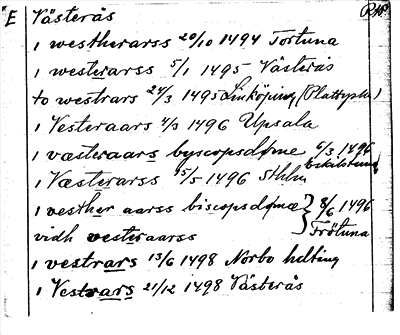 E Västerås RAP
i westherarss 20/10 1494 Tortuna
i westerarss 5/1 1495 Västerås
to westrars 24/3 1495 Linköping (Plattyska)
i Vesteraars 4/3 1496 Upsala
i væsteraars byscopsdøme 6/3 1496 Eskilstuna
i Væsterarss 15/5 1496 Sthlm
i vesther aarss biscopsdømæ } 8/6 1496
vidh westeraarss } Frötuna
i vestrars 13/6 1498 Norbo hdting
i Vestrars 21/12 1498 Västerås